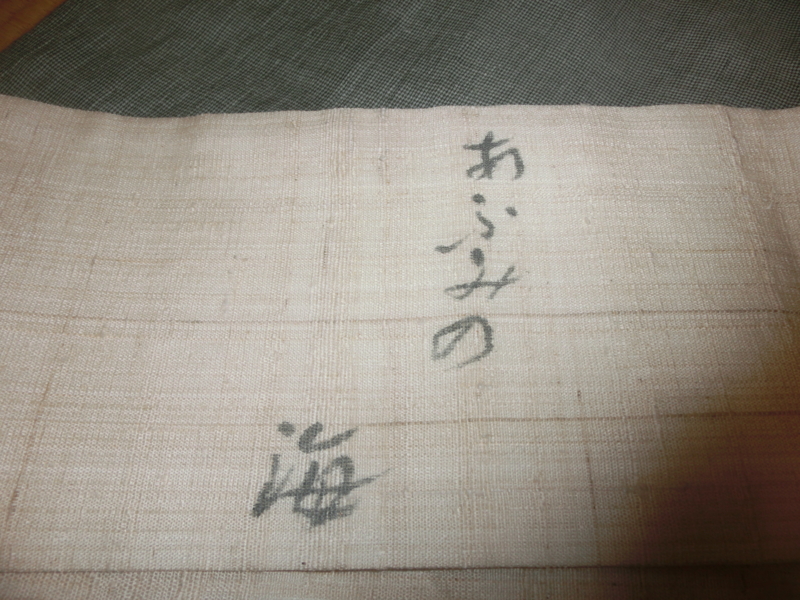 あふみの
海